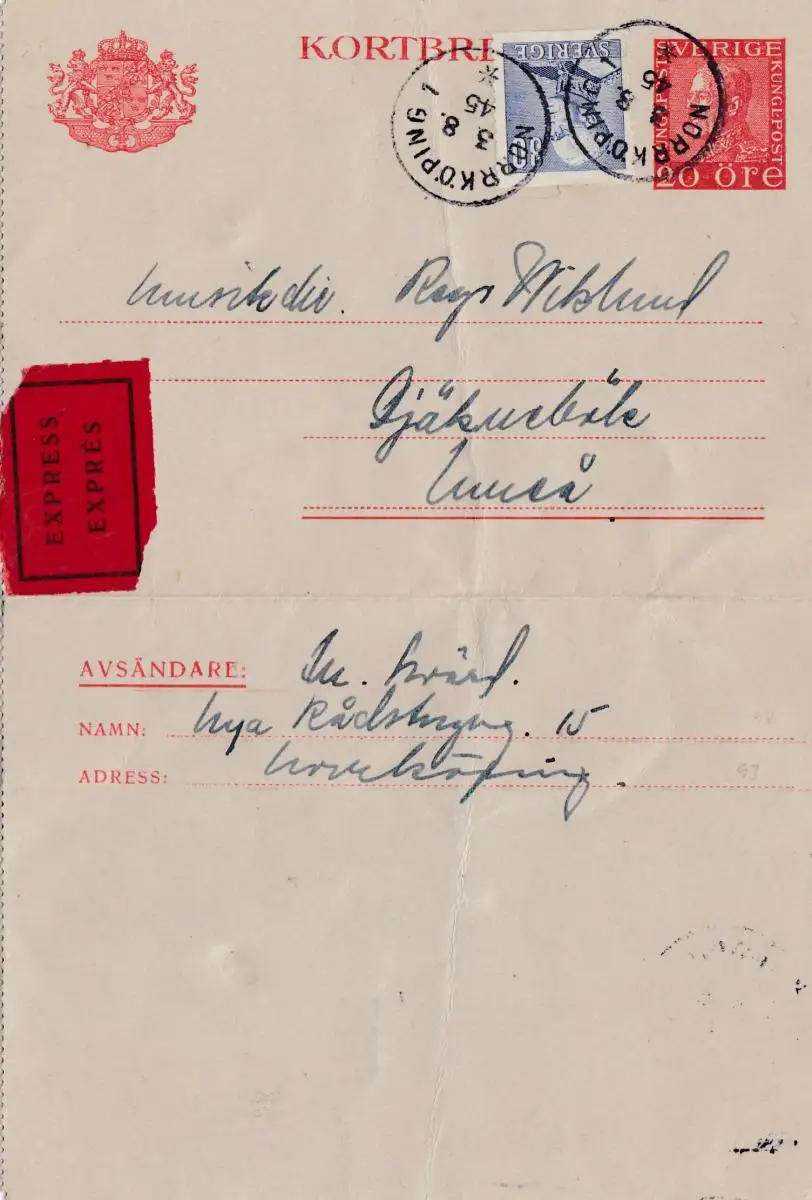 KORTBRE
SVERIGE
SVERIGE
KUNGL.POST
20 öre
NORRKÖPING 1
3 8.
45
NORRKÖPING 1
3 8
45
Musikdir. Wiklund
Umeå
EXPRESS
EXPRÈS
AVSÄNDARE: M. Svärd.
NAMN: Nya Rådstugug. 15
ADRESS: Norrköping.